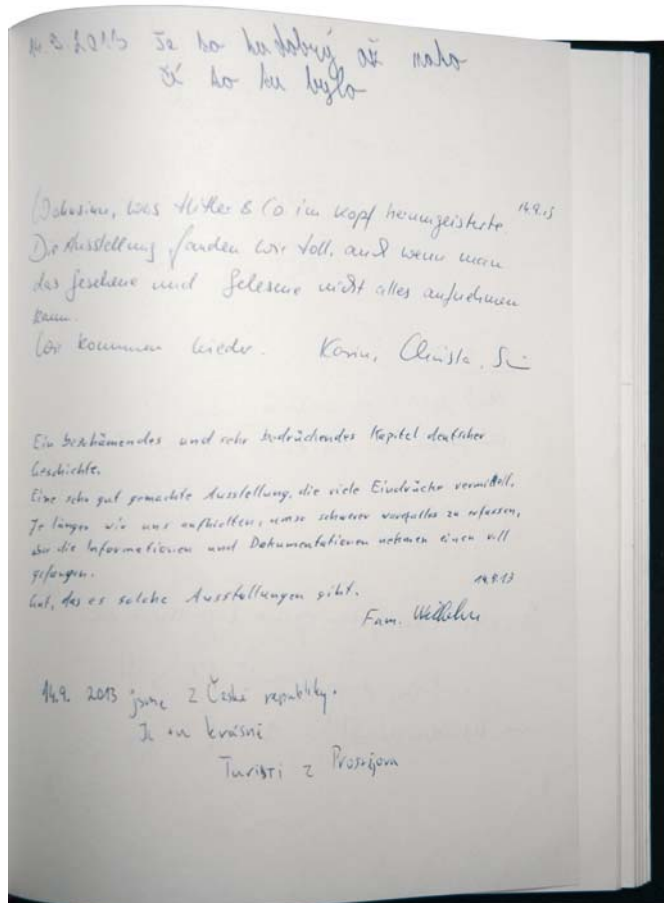 14.9.2013 Je to tu dobrý až na to
čí to tu bylo
14.9.13
Wahnsinn, was Hitler & Co im Kopf herumgeisterte.
Die Ausstellung fanden wir toll, auch wenn man
das Gesehene und Gelesene nicht alles aufnehmen
kann.
Wir kommen wieder. Karin, Christa,
Ein beschämendes und sehr bedrückendes Kapitel deutscher
Geschichte.
Eine sehr gut gemachte Ausstellung, die viele Eindrücke vermittelt.
Je länger wir uns aufhielten, umso schwerer war alles zu erfassen,
aber die Informationen und Dokumentationen nehmen einen voll
gefangen.
14.9.13
Gut, das es solche Ausstellungen gibt.
Fam.
14.9. 2013 jsme z České republiky.
Je tu krásně
Turisti z Prostějova